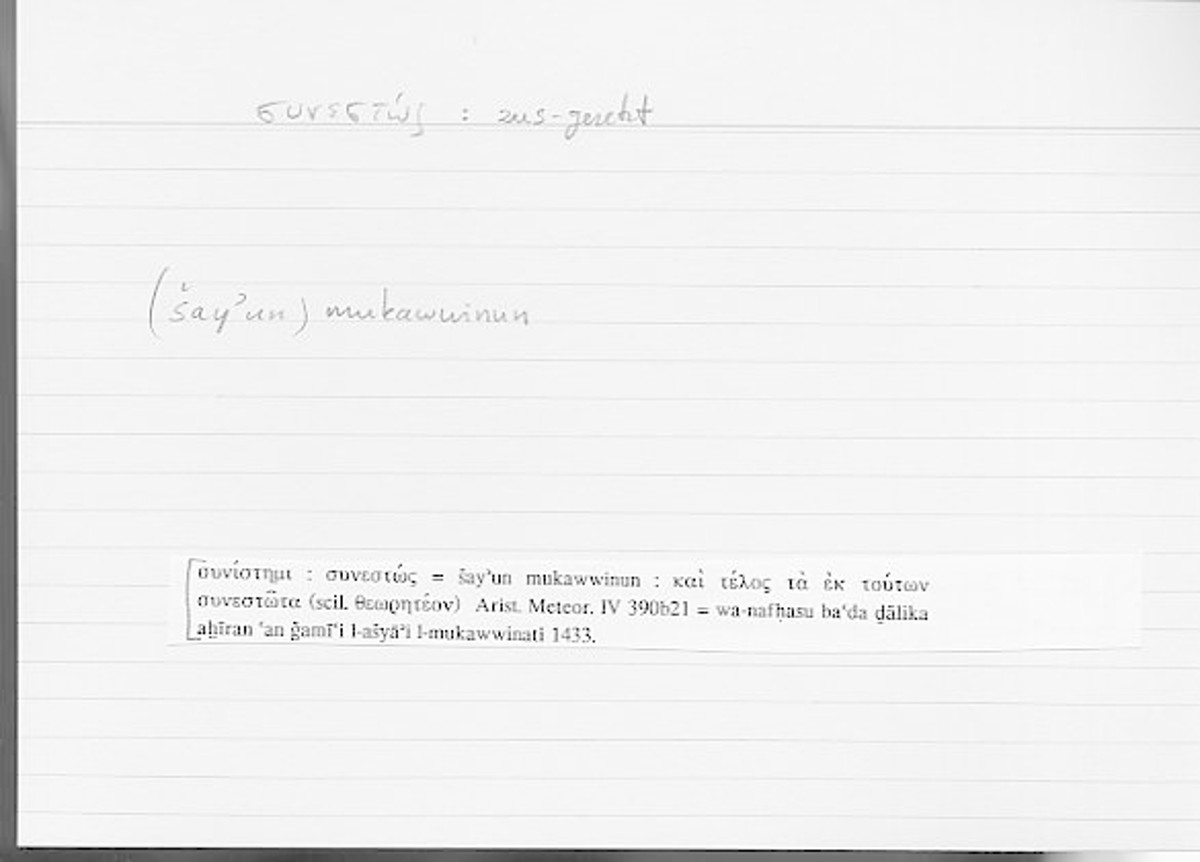 συνεστώς : zus-gesetzt
(šayʾun) mukawwinun
συνίστημι : συνεστώς = šayʾun mukawwinun : καὶ τέλος τὰ ἐκ τούτων
συνεστῶτα (scil. θεωρητέον) Arist. Meteor. IV 390b21 = wa-nafḥasu baʿda ḏālika
aḫīran ʿan ǧamīʿi l-ašyāʾi l-mukawwinati 1433.